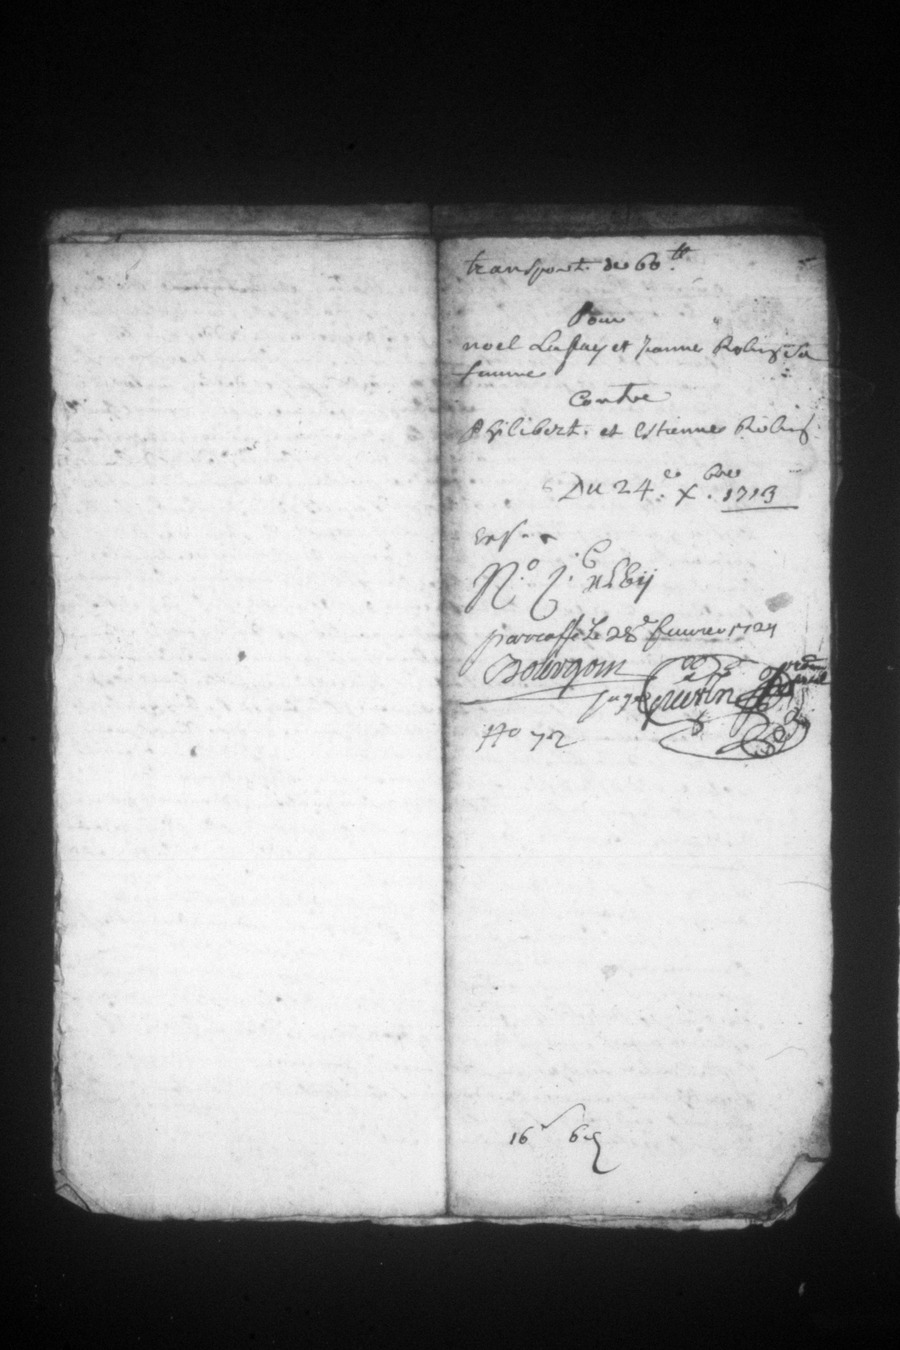 transport de 60 ᵗᵗ
Pour
noel et Jeanne Robin Sa
femme
Contre
Philibert et Estienne Robin
Du 24.e Xbre 1713
N.o
paraffé Le 28e feuvrier 1724
Bourgoin
Juge
No 72
16 s 6 d